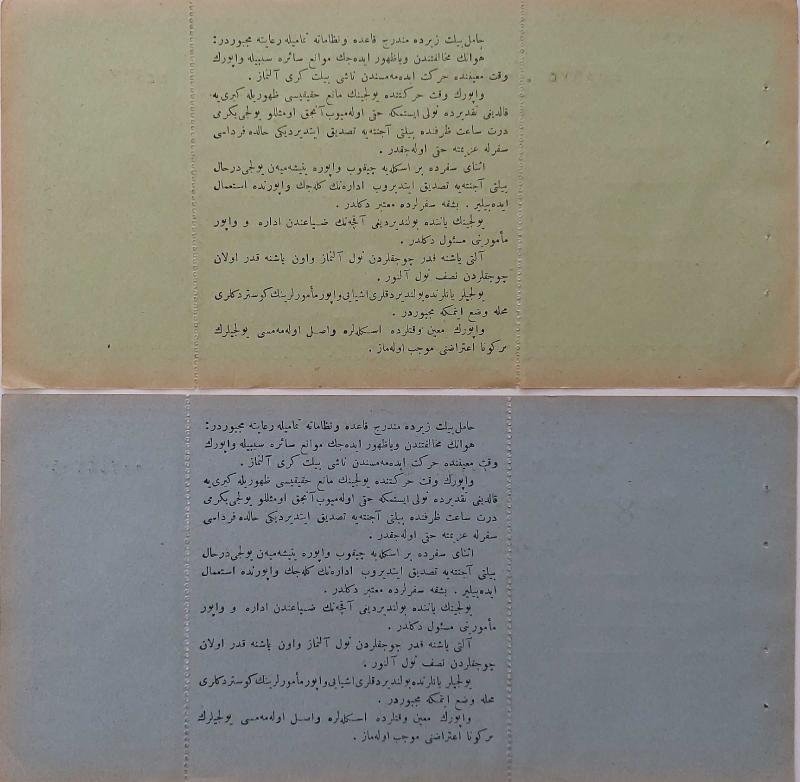 حامل بیلت زیرده مندرج قاعده ونظاماته تمامیله رعایته مجبوردر :
هوانك مخالفتندن ویاظهور ایده‌جك موانع سائره سببیله واپورك
وقت معیننده حرکت ایده‌مه‌مسندن ناشی بیلت کری آلنماز .
واپورك وقت حرکتنده یولجینك مانع حقیقیسی ظهوریله کیری‌یه
قالدیغی تقدیرده نولی ایستمکه حقی اوله‌میوب آنجق اومثللو یولجی یکرمی
درت ساعت ظرفنده بیلتی آجنته‌یه تصدیق ایتدیردیکی حالده فرداسی
سفرله عزیمته حقی اوله‌جقدر .
اثنای سفرده بر اسکله‌یه چیقوب واپوره یتیشه‌میه‌ن یولجی درحال
بیلتی آجنته‌یه تصدیق ایتدیروب اداره‌نك کله‌جك واپورنده استعمال
ایده‌بیلیر . بشقه سفرلرده معتبر دکلدر .
یولجینك یاننده بولندیردیغی آقچه‌نك ضیاعندن اداره و واپور
مأمورینی مسئول دکلدر .
آلتی یاشنه قدر چوجقلردن نول آلنماز واون یاشنه قدر اولان
چوجقلردن نصف نول آلنور .
یولجیلر یانلرنده بولندیردقلری اشیایی واپور مأمورلرینك کوستردکلری
محله وضع ایتمکه مجبوردر .
واپورك معین وقتلرده اسکله‌لره واصل اوله‌مه‌مسی یولجیلرك
برکونا اعتراضنی موجب اوله‌ماز .
حامل بیلت زیرده مندرج قاعده ونظاماته تمامیله رعایته مجبوردر :
هوانك مخالفتندن ویاظهور ایده‌جك موانع سائره سببیله واپورك
وقت معیننده حرکت ایده‌مه‌مسندن ناشی بیلت کری آلنماز .
واپورك وقت حرکتنده یولجینك مانع حقیقیسی ظهوریله کیری‌یه
قالدیغی تقدیرده نولی ایستمکه حقی اوله‌میوب آنجق اومثللو یولجی یکرمی
درت ساعت ظرفنده بیلتی آجنته‌یه تصدیق ایتدیردیکی حالده فرداسی
سفرله عزیمته حقی اوله‌جقدر .
اثنای سفرده بر اسکله‌یه چیقوب واپوره یتیشه‌میه‌ن یولجی درحال
بیلتی آجنته‌یه تصدیق ایتدیروب اداره‌نك کله‌جك واپورنده استعمال
ایده‌بیلیر . بشقه سفرلرده معتبر دکلدر .
یولجینك یاننده بولندیردیغی آقچه‌نك ضیاعندن اداره و واپور
مأمورینی مسئول دکلدر .
آلتی یاشنه قدر چوجقلردن نول آلنماز واون یاشنه قدر اولان
چوجقلردن نصف نول آلنور .
یولجیلر یانلرنده بولندیردقلری اشیایی واپور مأمورلرینك کوستردکلری
محله وضع ایتمکه مجبوردر .
واپورك معین وقتلرده اسکله‌لره واصل اوله‌مه‌مسی یولجیلرك
برکونا اعتراضنی موجب اوله‌ماز .